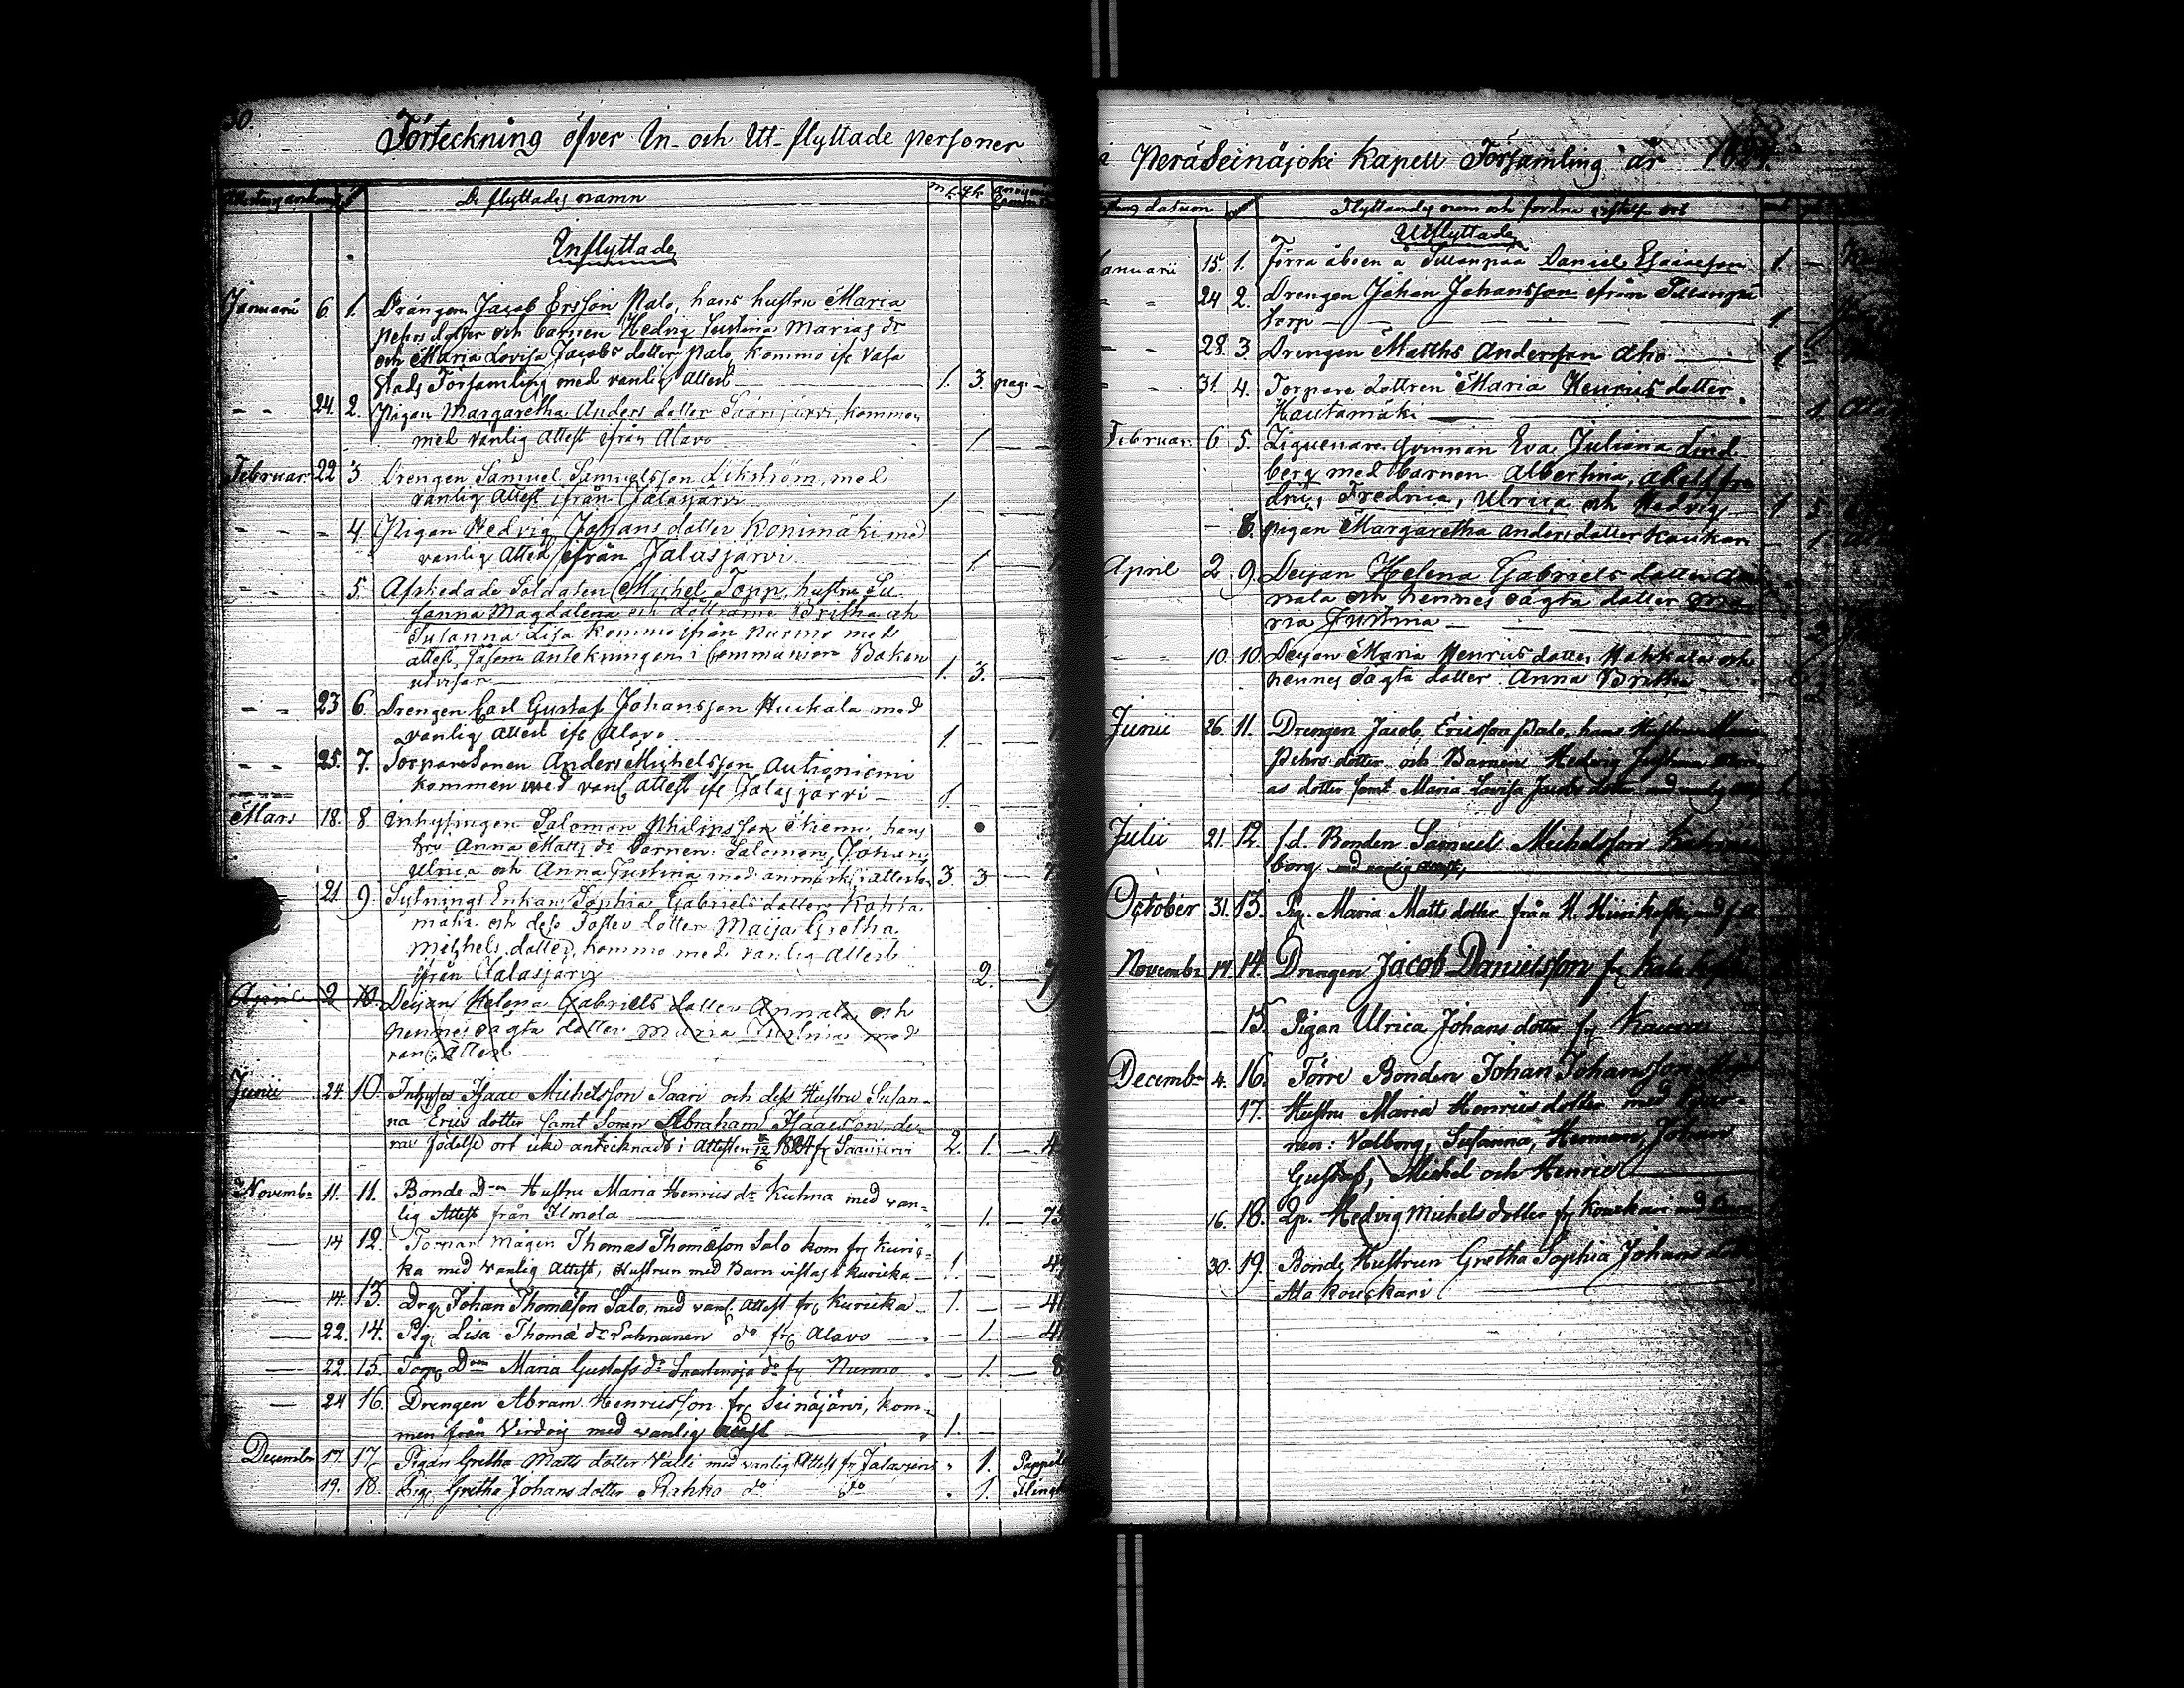 30.
Förteckning öfver In- och Ut-flyttade personer
De flyttades namn
Inflyttade
Januarii 6 1. Drängen Jacob Ersson Palo, hans hustru Maria
Pehrs dotter och barnen Hedvig Justina Marias dr
och Maria Lovisa Jacobs dotter Palo, kommo ifr Vasa
Stads Församling med vanlig Attest 1. 3. pag.
- - 24. 2. Pigan Margaretha Anders dotter Saarijärvi, kommen
med vanlig Attest ifrån Alavo 1.
Februar. 22 3 Drengen Samuel Samuelsson Likström, med
vanlig Attest ifrån Jalasjärvi 1
- - - 4 Pigan Hedvig Johans dotter Konimäki med
vanlig Attest ifrån Jalasjärvi 1.
5. Afskedade Soldaten Michel Topp, hustru Su
sanna Magdalena och döttrarne Britha och
Susanna Lisa kommo ifrån Nurmo med
attest, såsom antekningen i Communion Boken
utvisar 1. 3.
- - 23 6. Drengen Carl Gustaf Johansson Huckala med
vanlig attest ifr Alavo 1.
- - 25. 7. Torparesonen Anders Michelsson Autioniemi
kommen med vanl attest ifr Jalasjärvi 1
Mars 18. 8 Inhysingen Salomon Philipsson Niemi, hans
hru Anna Matts dr barnen: Salomon, Johan,
Ulrica och Anna Justina med anmärkt attester 3. 3
21. 9. Sytnings Enkan Sophia Gabriels dotter Kohta
mäki och dess Foster dotter Maija Gretha
Michels dotter, kommo med vanlig Attest
ifrån Jalasjärvi 2.
April 2 10. Deijan Helena Gabriels dotter Annala och
hennes oägta dotter Maria Justina med
vanl. Attest
Junii 24. 10. Inhyses Isaac Michelsson Saari och dess Hustru Susan-
na Erics dotter samt Sonen Abraham Isaacsson de-
ras födelse ort icke antecknadt i Attesten 2. 1. 4
Novembr 11. 11. Bonde D:n Hustru Maria Henrics dr Kuhna med van-
lig Attest från Ilmola 1.
14 12. Thomas Thomæsson Salo kom fr Kuric-
ka med vanlig Attest, Hustrun med Barn vistas i Kuricka 1.
14. 13. Drg Johan Thomæsson Salo, med vanl. Attest fr Kuricka 1.
22. 14. Pig Lisa Thomæ dr Lahnanen do fr Alavo 1.
22. 15. Torp Maria Gustafs dr do fr Nurmo 1. 8
24 16. Drengen Abram Henricsson fr Seinäjärvi, kom-
men från Virdois med vanlig Attest 1.
December 17. 17. Pigan Gretha Matts dotter Valli med vanlig Attest fr Jalasjärvi 1.
19. 18. Pig Gretha Johans dotter Rahko do do 1.
i PeräSeinäjoki Kapell Församling år
datum
Utflyttade
Januarii 15. 1. Förra åboen å Sillanpää Daniel Esaiasson 1.
- - 24 2. Drengen Johan Johansson ifrån Sillanpä
torp 1
- - 28. 3. Drengen Matths Andersson Aho 1
31. 4. Torpare dottren Maria Henrics dotter
Kautamäki 1
Februar. 6 5. Ziguenare qvinnan Eva Juliana Lind
berg med barnen Albertina, Adolf Fre
dric, Fredrica, Ulrica och Hedvig 1 5.
8. pigan Margaretha Anders dotter 1
April 2 9. Deijan Helena Gabriels dotter An
nala och hennes oägta dotter Ma
ria Justina 2
- - 10. 10. Deijan Maria Henrics dotter Hakkala och
hennes oägta dotter Anna Britha
Junii 26. 11. Drengen Jacob Ericsson Palo, hans Hustru Maria
Pehrs dotter och Barnen Hedvig Justina Mari-
as dotter samt Maria Lovisa Jacobs dotter
Julii 21. 12. f.d. Bonden Samuel Michelsson
borg med vanlig Attest,
October 31. 13. Pig. Maria Matts dotter från
Novembr 14. Drengen Jacob Danielsson fr
15. Pigan Ulrica Johans dotter fr
Decembr 4. 16. Förre Bonden Johan Johansson
17. Hustru Maria Henrics dotter med
nen: Valborg, Susanna, Herman, Johan
Gustaf, Michel och Henric
16. 18. Hedvig Michels dotter fr
30. 19. Bonde Hustrun Gretha Sophia Johans
Ala Kouckari